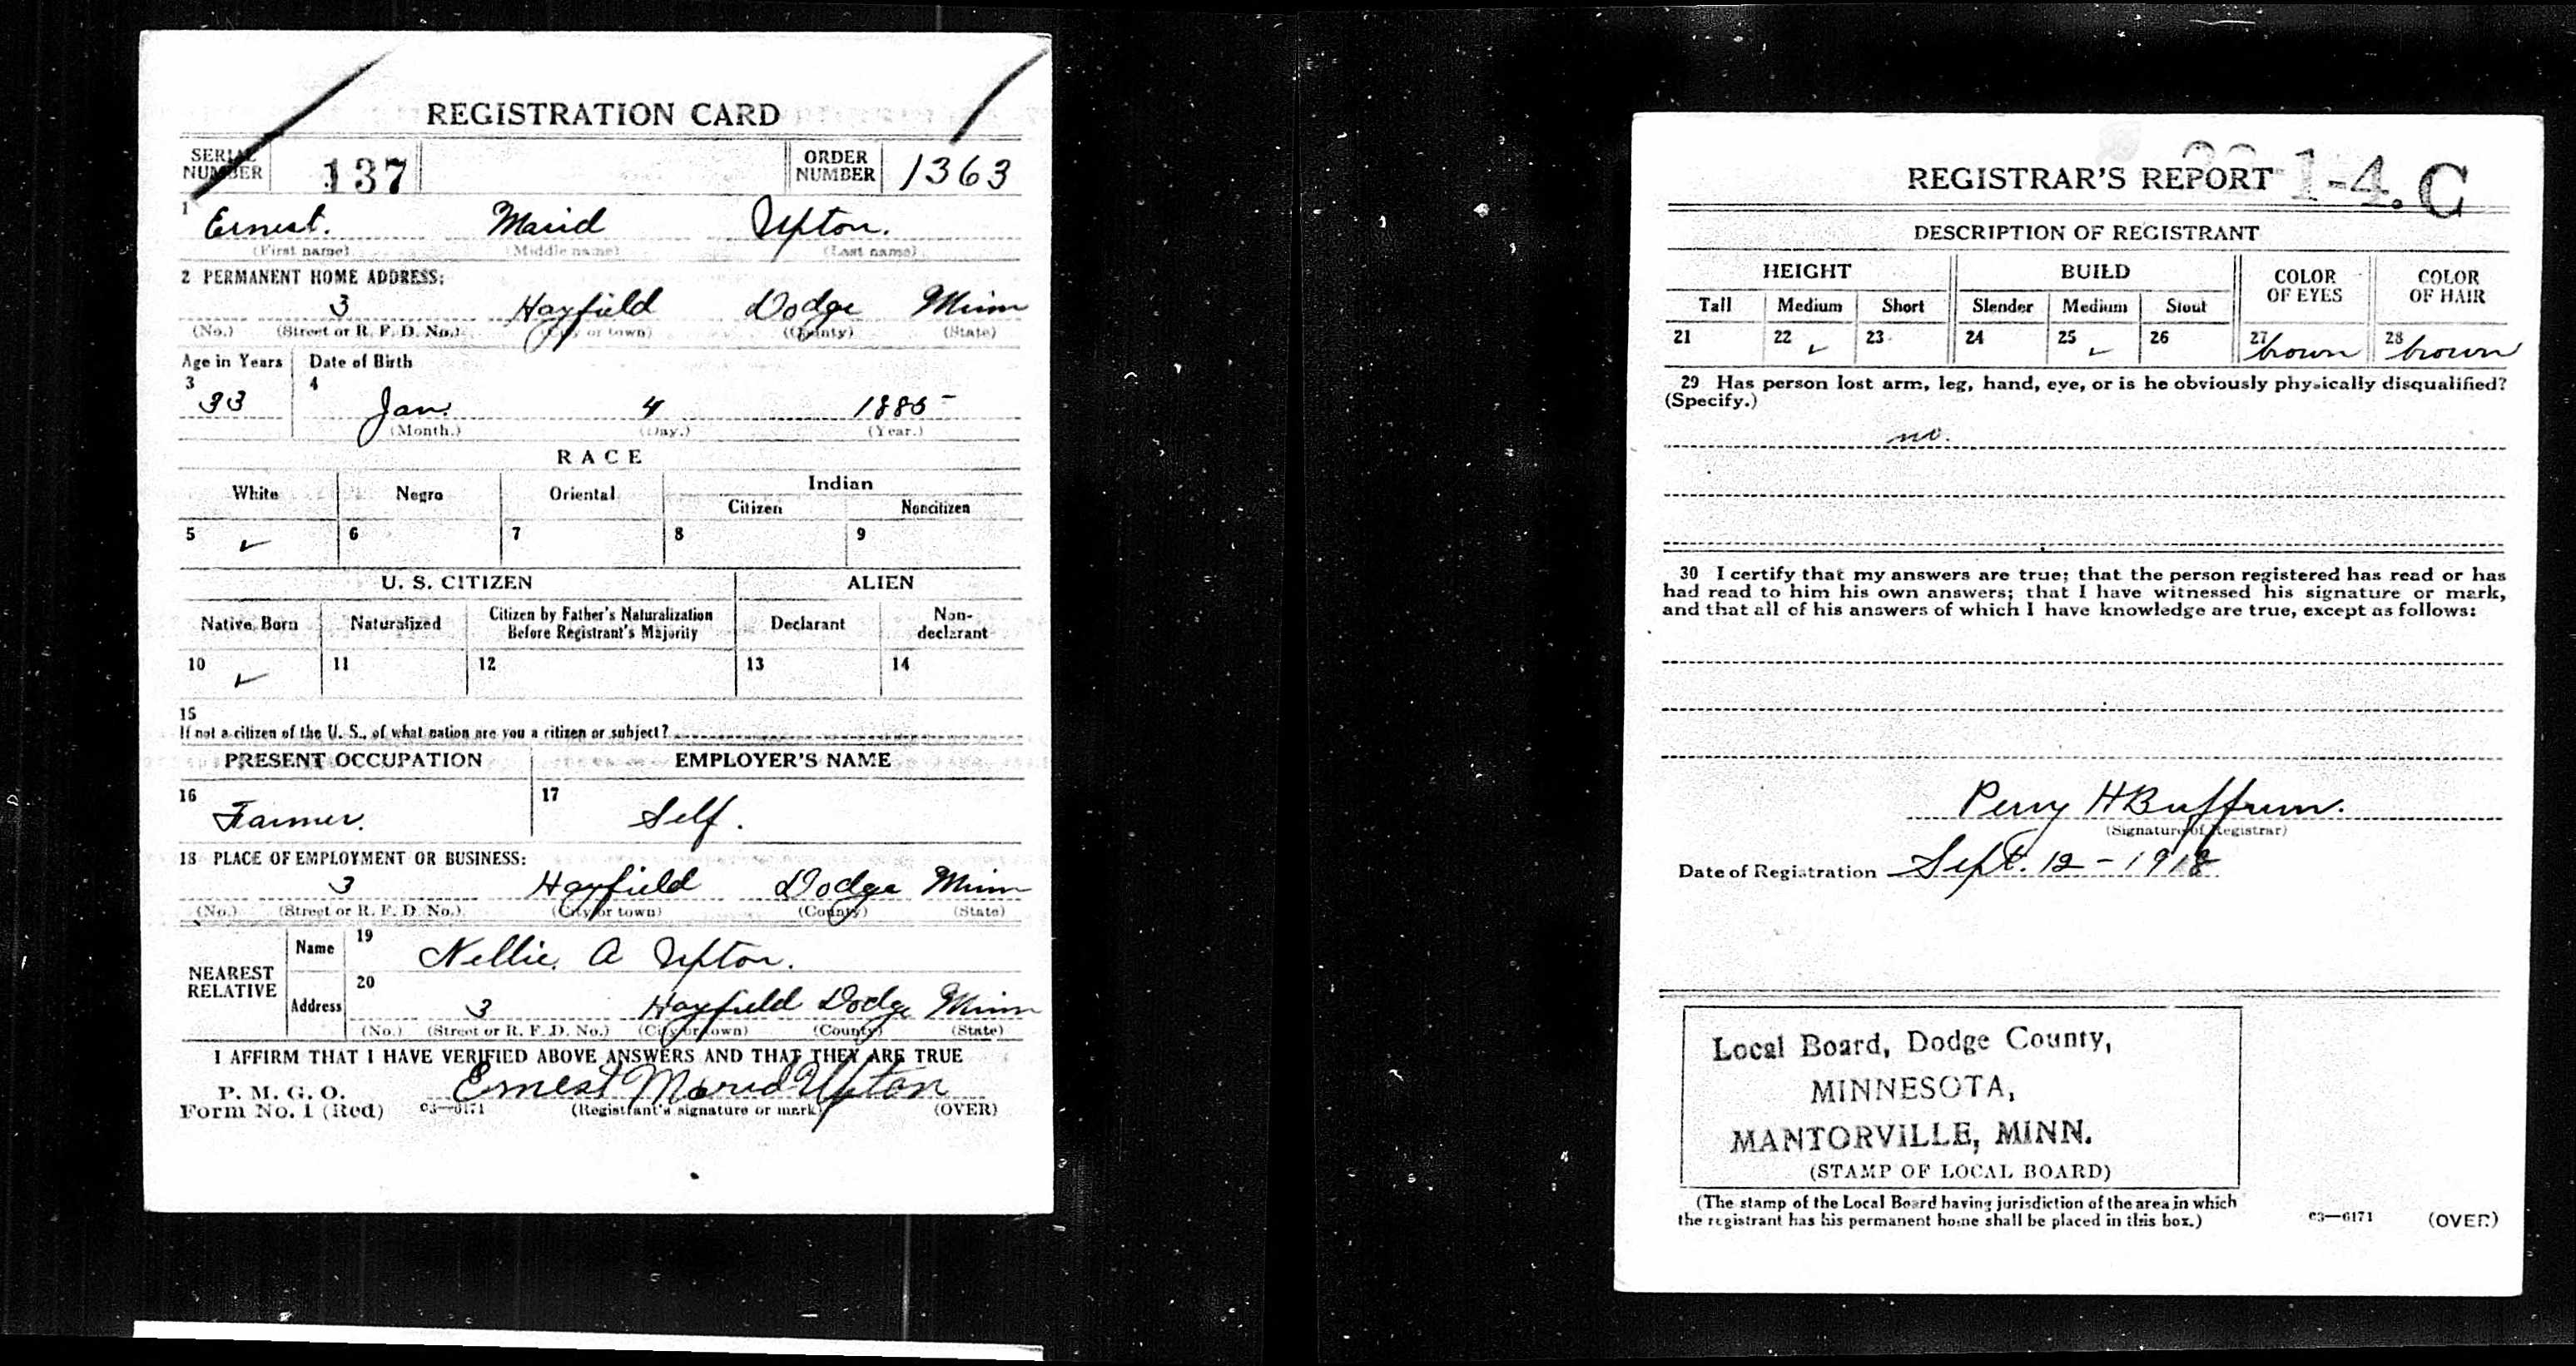 REGISTRATION CARD
SERIAL NUMBER 137 ORDER NUMBER 1363
1 Ernest. Marid Upton.
(First name) (Middle name) (Last name)
2 PERMANENT HOME ADDRESS:
3 Hayfield Dodge Minn
(No.) (Street or R. F. D. No.) (City or town) (County) (State)
Age in Years Date of Birth
3 4
33 Jan. 4 1885
(Month.) (Day.) (Year.)
RACE
White Negro Oriental Indian
Citizen Noncitizen
5 ✓ 6 7 8 9
U. S. CITIZEN ALIEN
Native Born Naturalized Citizen by Father's Naturalization Before Registrant's Majority Declarant Non-declarant
10 ✓ 11 12 13 14
15
If not a citizen of the U. S., of what nation are you a citizen or subject?
PRESENT OCCUPATION EMPLOYER'S NAME
16 Farmer. 17 Self.
18 PLACE OF EMPLOYMENT OR BUSINESS:
3 Hayfield Dodge Minn
(No.) (Street or R. F. D. No.) (City or town) (County) (State)
NEAREST RELATIVE
Name 19 Nellie. A Upton.
Address 20 3 Hayfield Dodge Minn
(No.) (Street or R. F. D. No.) (City or town) (County) (State)
I AFFIRM THAT I HAVE VERIFIED ABOVE ANSWERS AND THAT THEY ARE TRUE
P. M. G. O.
Form No. 1 (Red) 03—6171 Ernest Marid Upton
(Registrant's signature or mark) (OVER)
REGISTRAR'S REPORT
1-4. C
DESCRIPTION OF REGISTRANT
HEIGHT BUILD COLOR OF EYES COLOR OF HAIR
Tall Medium Short Slender Medium Stout
21 22 ✓ 23 24 25 ✓ 26 27 brown 28 brown
29 Has person lost arm, leg, hand, eye, or is he obviously physically disqualified?
(Specify.)
no.
30 I certify that my answers are true; that the person registered has read or has
had read to him his own answers; that I have witnessed his signature or mark,
and that all of his answers of which I have knowledge are true, except as follows:
Perry H Buffum.
(Signature of Registrar)
Date of Registration Sept. 12 - 1918
Local Board, Dodge County,
MINNESOTA,
MANTORVILLE, MINN.
(STAMP OF LOCAL BOARD)
(The stamp of the Local Board having jurisdiction of the area in which
the registrant has his permanent home shall be placed in this box.)
03—6171 (OVER)